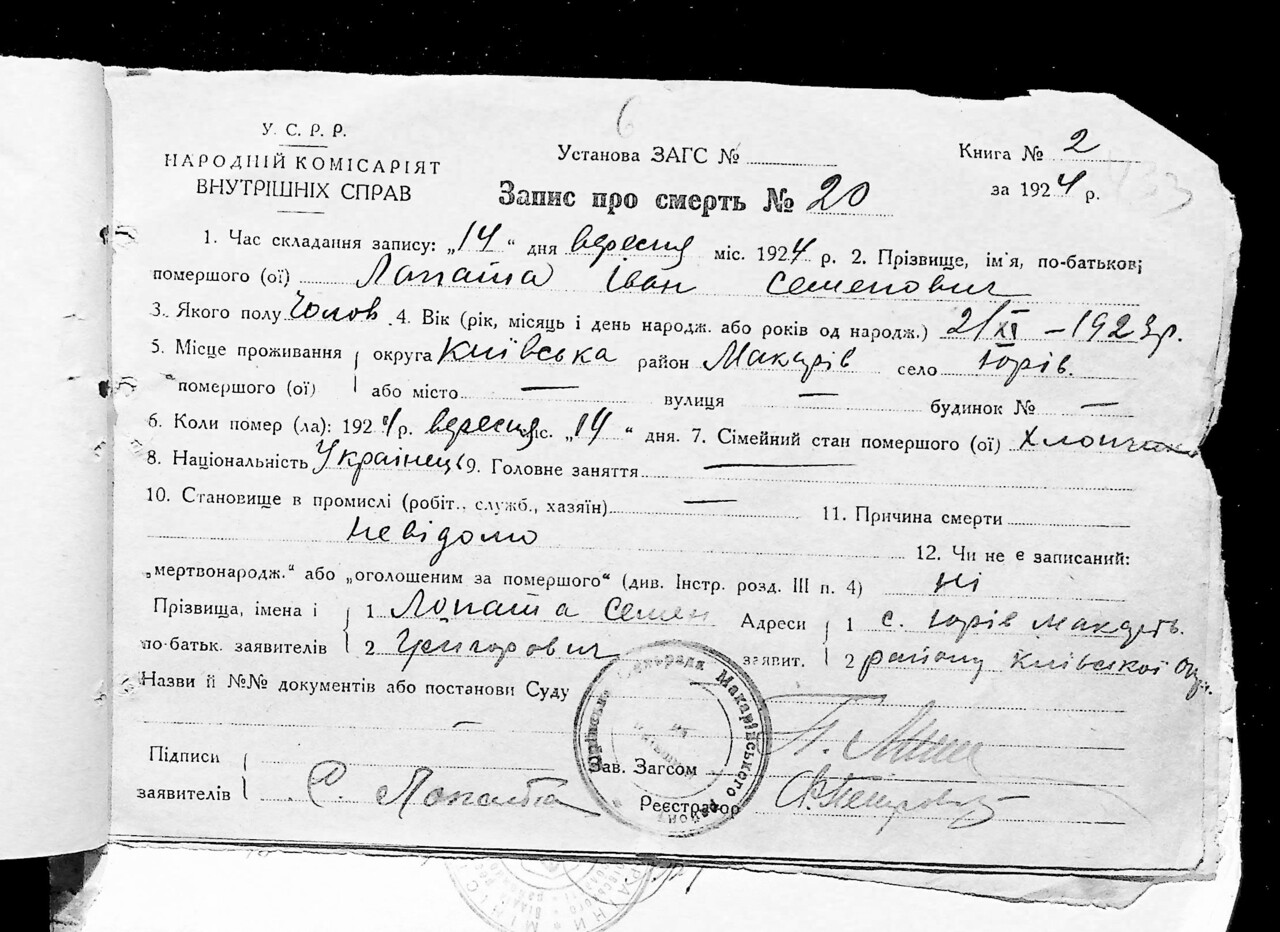 6
У. С. Р. Р.
НАРОДНІЙ КОМІСАРІЯТ
ВНУТРІШНІХ СПРАВ
Установа ЗАГС №
Книга № 2
Запис про смерть № 20
за 1924 р.
433
1. Час складання запису: „14“ дня вересня міс. 1924 р. 2. Прізвище, ім'я, по-батькові
помершого (ої) Лопата Іван Семенович
3. Якого полу Чолов. 4. Вік (рік, місяць і день народж. або років од народж.) 2/XI – 1923р.
5. Місце проживання округа Київська район Макарів село Юрів.
помершого (ої) або місто — вулиця — будинок № —
6. Коли помер (ла): 1924р. вересня міс. „14“ дня. 7. Сімейний стан помершого (ої)
8. Національність Українець 9. Головне заняття —
10. Становище в промислі (робіт., служб., хазяїн) — 11. Причина смерти
невідомо 12. Чи не є записаний:
„мертвонародж.“ або „оголошеним за помершого“ (див. Інстр. розд. III п. 4) ні
Прізвища, імена і 1 Лопата Семен Адреси 1 с. Юрів
по-батьк. заявителів 2 Григорович заявит. 2 району Київської
Назви й №№ документів або постанови Суду
–
Підписи
заявителів С. Лопата
Зав. Загсом
Реєстратор
Макарійського району